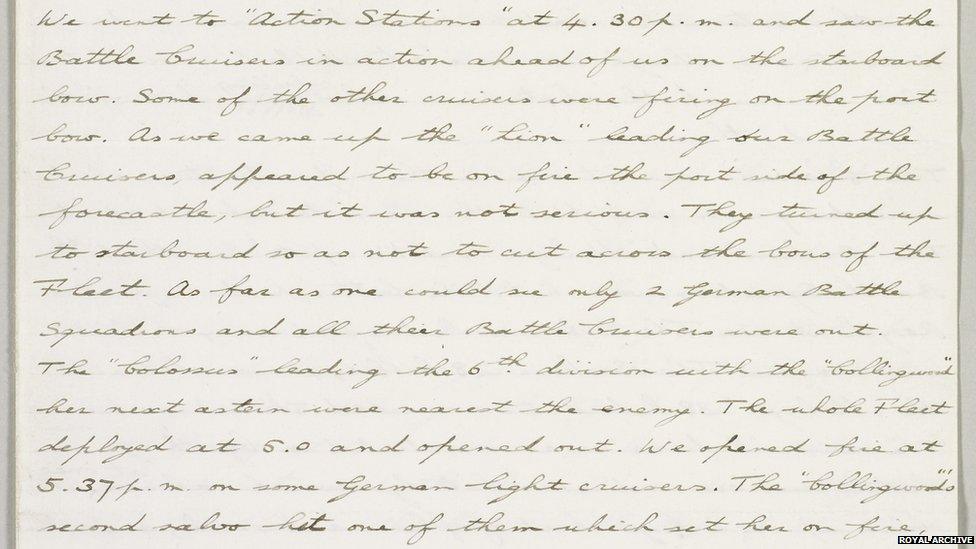 We went to "Action Stations" at 4.30 p.m. and saw the
Battle Cruisers in action ahead of us on the starboard
bow. Some of the other cruisers were firing on the port
bow. As we came up the "Lion" leading our Battle
Cruisers, appeared to be on fire the port side of the
forecastle, but it was not serious. They turned up
to starboard so as not to cut across the bows of the
Fleet. As far as one could see only 2 German Battle
Squadrons and all their Battle Cruisers were out.
The "Colossus" leading the 6th division with the "Collingwood"
her next astern were nearest the enemy. The whole Fleet
deployed at 5.0 and opened out. We opened fire at
5.37 p.m. on some German light cruisers. The "Collingwood's"
second salvo hit one of them which set her on fire,
ROYAL ARCHIVE